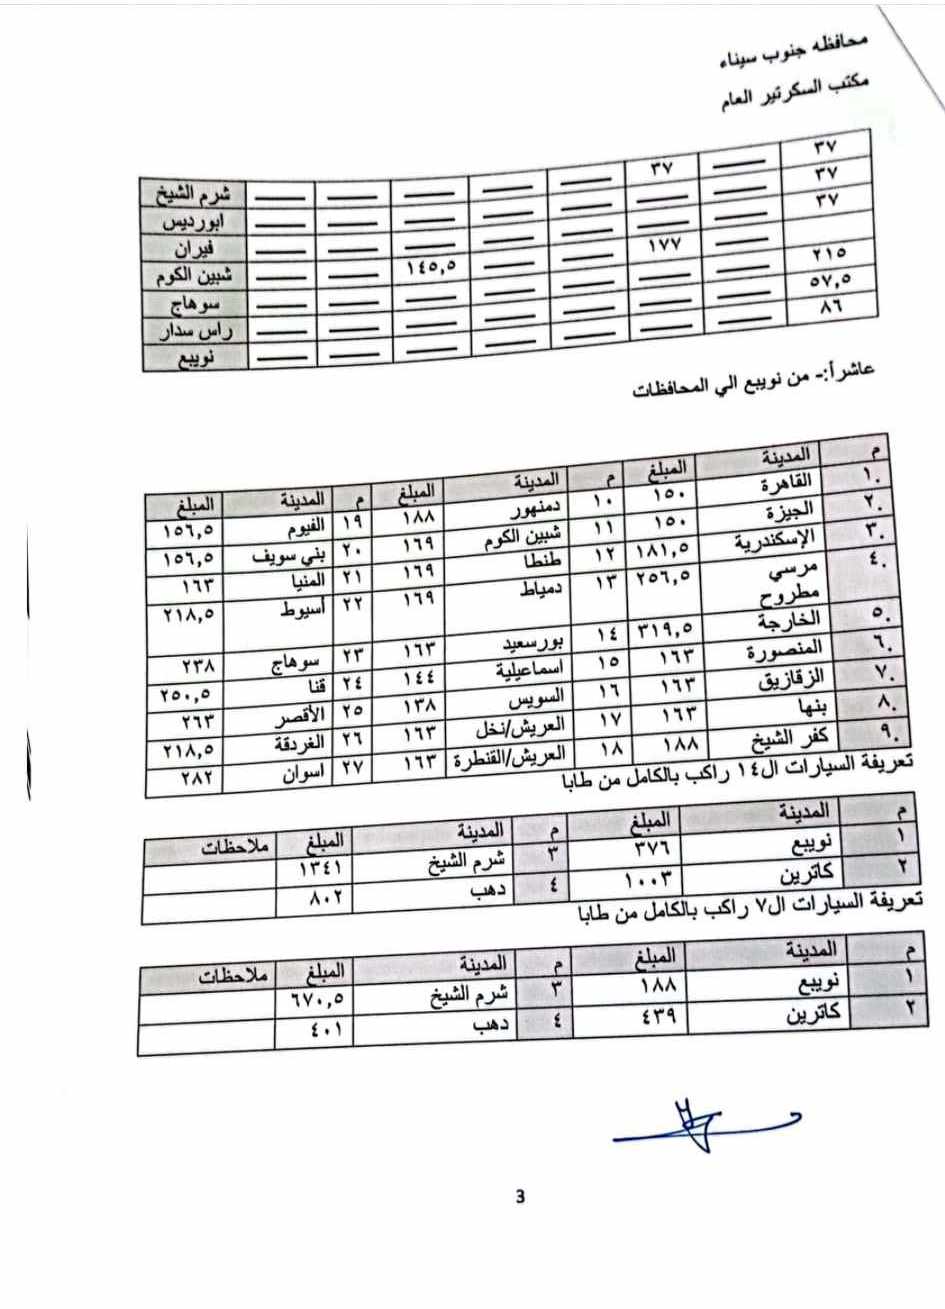 محافظه جنوب سيناء
مكتب السكرتير العام
شرم الشيخ ـــ ـــ ـــ ـــ ـــ ٣٧ ـــ ٣٧
ابورديس ـــ ـــ ـــ ـــ ـــ ـــ ـــ ٣٧
فيران ـــ ـــ ـــ ـــ ـــ ـــ ـــ ٣٧
شبين الكوم ـــ ـــ ١٤٥,٥ ـــ ـــ ١٧٧ ـــ
سوهاج ـــ ـــ ـــ ـــ ـــ ـــ ـــ ٢١٥
راس سدار ـــ ـــ ـــ ـــ ـــ ـــ ـــ ٥٧,٥
نويبع ـــ ـــ ـــ ـــ ـــ ـــ ـــ ٨٦
عاشراً:- من نويبع الي المحافظات
م المدينة المبلغ م المدينة المبلغ م المدينة المبلغ
١. القاهرة ١٥٠ ١٠ دمنهور ١٨٨ ١٩ الفيوم ١٥٦,٥
٢. الجيزة ١٥٠ ١١ شبين الكوم ١٦٩ ٢٠ بني سويف ١٥٦,٥
٣. الإسكندرية ١٨١,٥ ١٢ طنطا ١٦٩ ٢١ المنيا ١٦٣
٤. مرسي مطروح ٢٥٦,٥ ١٣ دمياط ١٦٩ ٢٢ أسيوط ٢١٨,٥
٥. الخارجة ٣١٩,٥ ١٤ بورسعيد ١٦٣ ٢٣ سوهاج ٢٣٨
٦. المنصورة ١٦٣ ١٥ اسماعيلية ١٤٤ ٢٤ قنا ٢٥٠,٥
٧. الزقازيق ١٦٣ ١٦ السويس ١٣٨ ٢٥ الأقصر ٢٦٣
٨. بنها ١٦٣ ١٧ العريش/نخل ١٦٣ ٢٦ الغردقة ٢١٨,٥
٩. كفر الشيخ ١٨٨ ١٨ العريش/القنطرة ١٦٣ ٢٧ اسوان ٢٨٢
تعريفة السيارات ال١٤ راكب بالكامل من طابا
م المدينة المبلغ م المدينة المبلغ ملاحظات
١ نويبع ٣٧٦ ٣ شرم الشيخ ١٣٤١
٢ كاترين ١٠٠٣ ٤ دهب ٨٠٢
تعريفة السيارات ال٧ راكب بالكامل من طابا
م المدينة المبلغ م المدينة المبلغ ملاحظات
١ نويبع ١٨٨ ٣ شرم الشيخ ٦٧٠,٥
٢ كاترين ٤٣٩ ٤ دهب ٤٠١
3